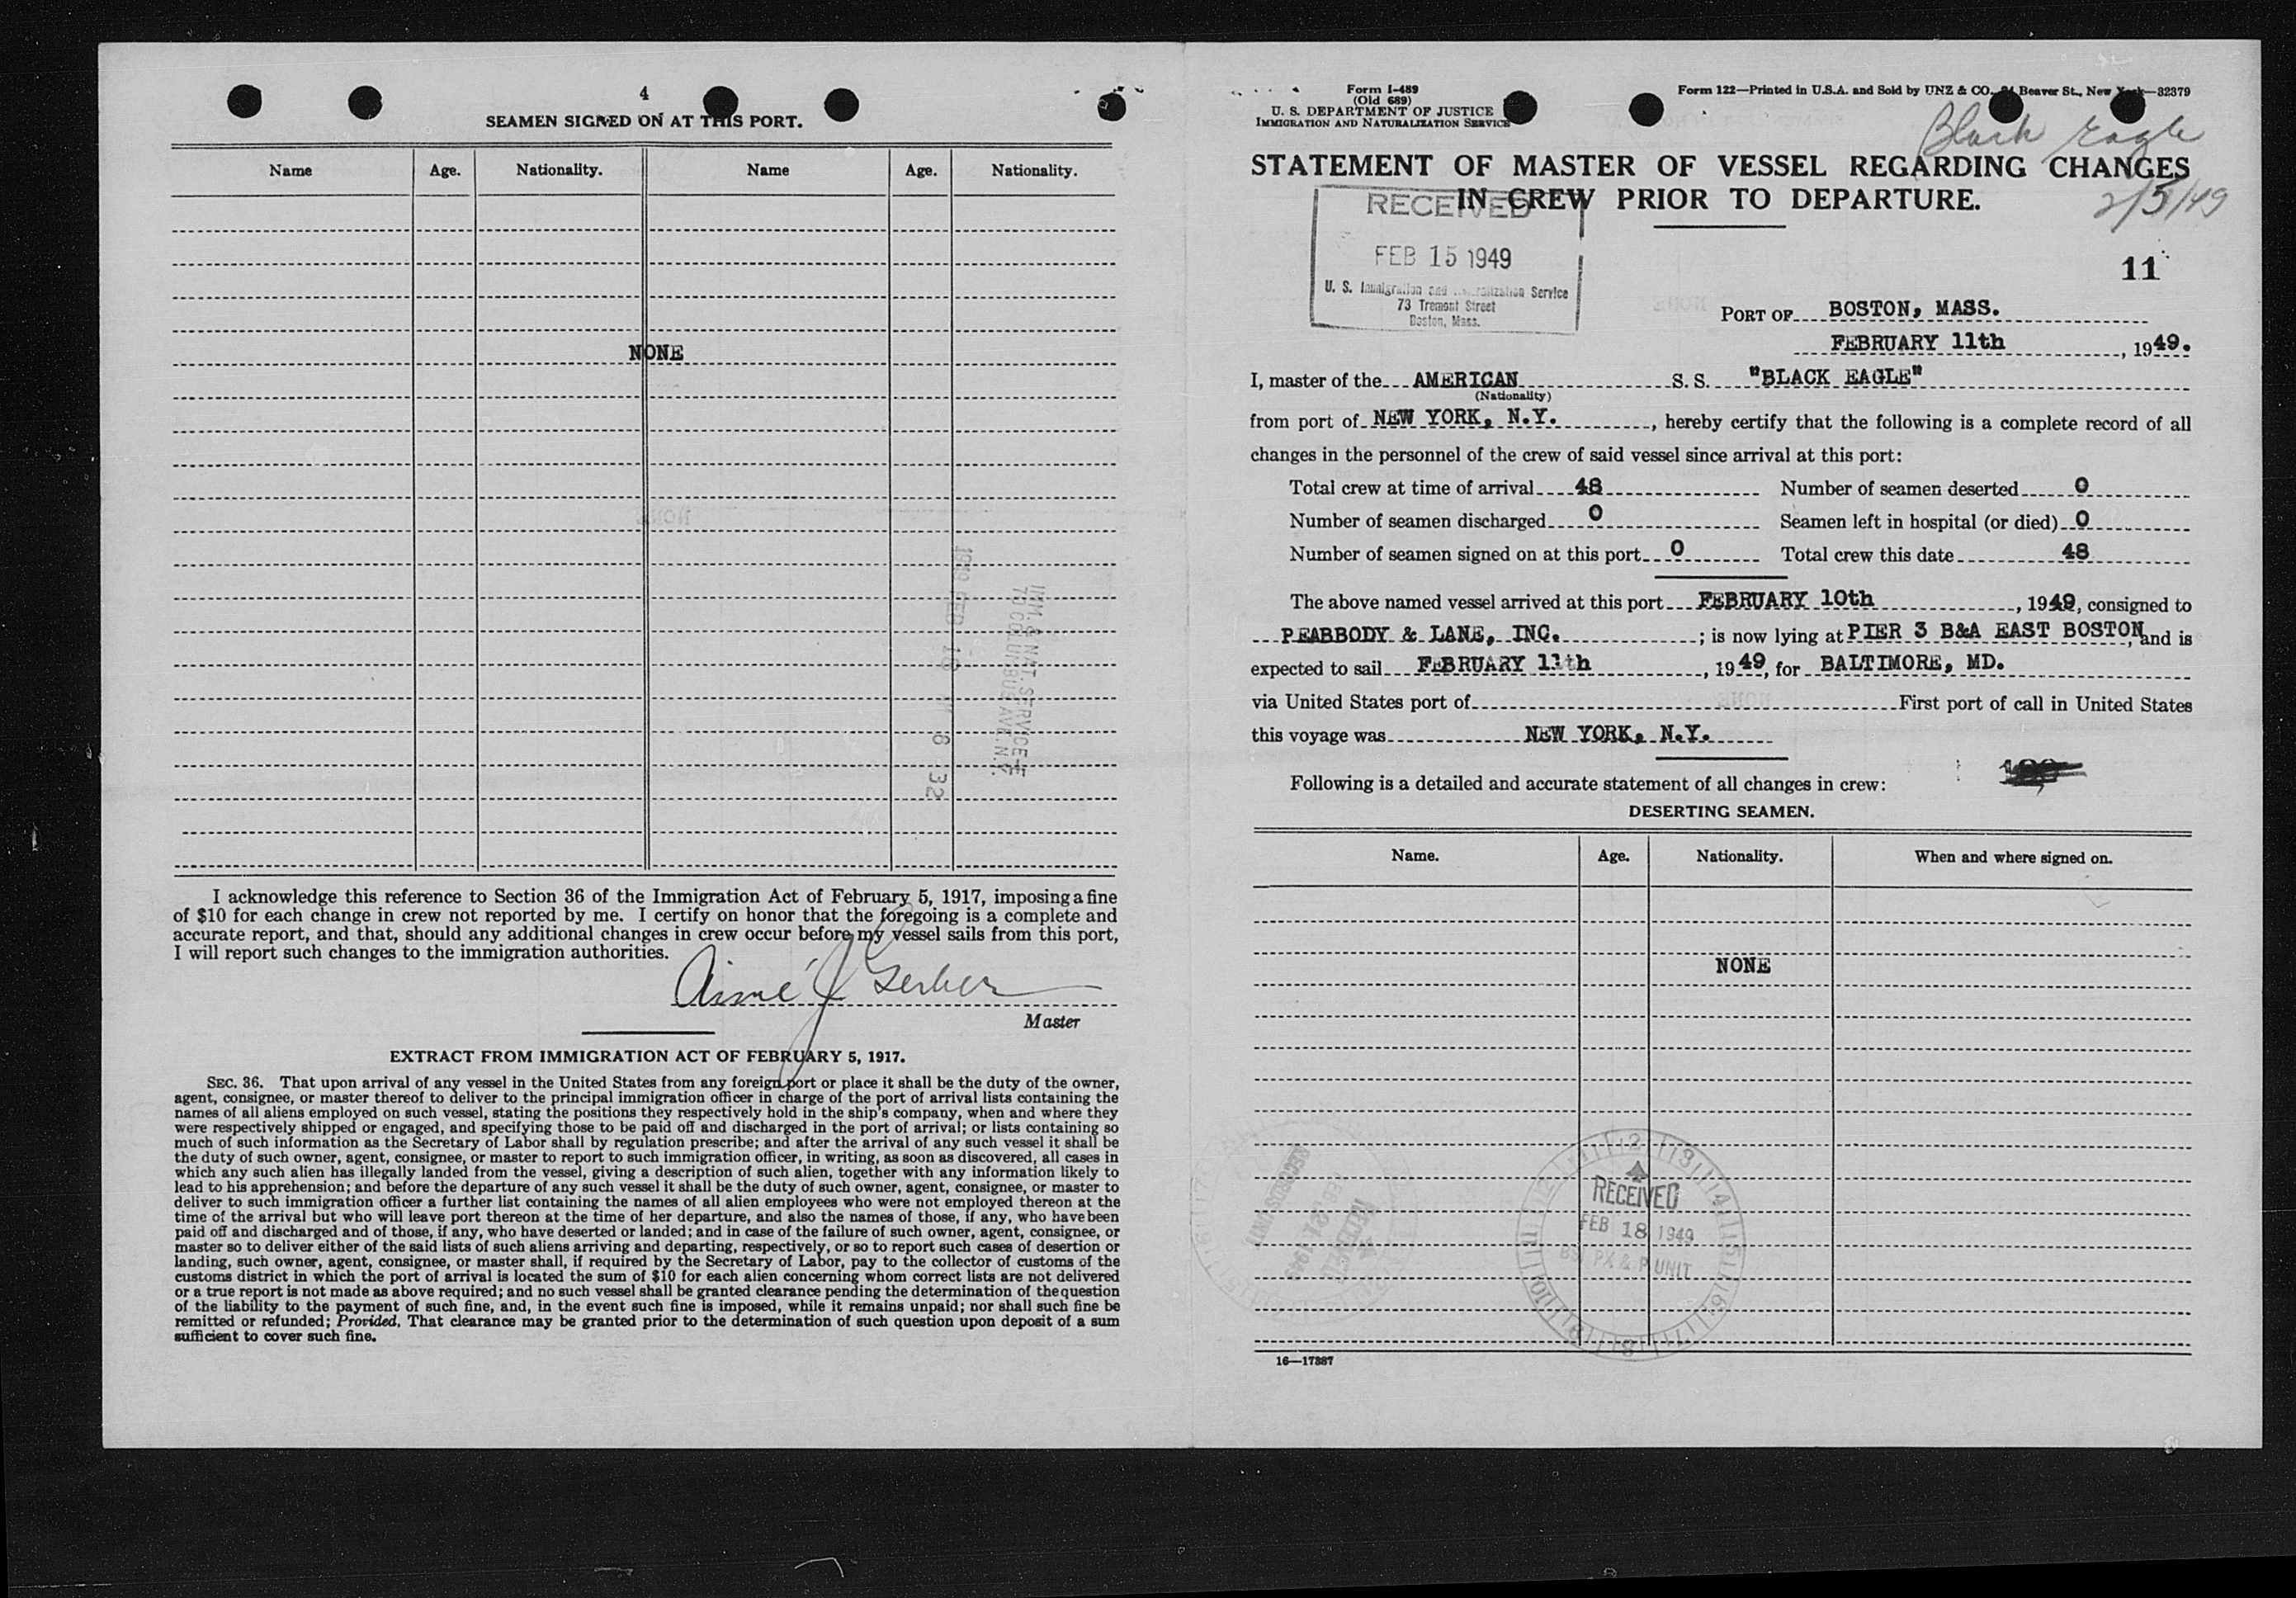 4
SEAMEN SIGNED ON AT THIS PORT.
Name Age. Nationality. Name Age. Nationality.
NONE
1949 FEB 18 6 32
IMM. & NAT. SERVICE
70 COLUMBUS AVE. N.Y.
I acknowledge this reference to Section 36 of the Immigration Act of February 5, 1917, imposing a fine
of $10 for each change in crew not reported by me. I certify on honor that the foregoing is a complete and
accurate report, and that, should any additional changes in crew occur before my vessel sails from this port,
I will report such changes to the immigration authorities.
Aimé J Gerber
Master
EXTRACT FROM IMMIGRATION ACT OF FEBRUARY 5, 1917.
SEC. 36. That upon arrival of any vessel in the United States from any foreign port or place it shall be the duty of the owner,
agent, consignee, or master thereof to deliver to the principal immigration officer in charge of the port of arrival lists containing the
names of all aliens employed on such vessel, stating the positions they respectively hold in the ship's company, when and where they
were respectively shipped or engaged, and specifying those to be paid off and discharged in the port of arrival; or lists containing so
much of such information as the Secretary of Labor shall by regulation prescribe; and after the arrival of any such vessel it shall be
the duty of such owner, agent, consignee, or master to report to such immigration officer, in writing, as soon as discovered, all cases in
which any such alien has illegally landed from the vessel, giving a description of such alien, together with any information likely to
lead to his apprehension; and before the departure of any such vessel it shall be the duty of such owner, agent, consignee, or master to
deliver to such immigration officer a further list containing the names of all alien employees who were not employed thereon at the
time of the arrival but who will leave port thereon at the time of her departure, and also the names of those, if any, who have been
paid off and discharged and of those, if any, who have deserted or landed; and in case of the failure of such owner, agent, consignee, or
master so to deliver either of the said lists of such aliens arriving and departing, respectively, or so to report such cases of desertion or
landing, such owner, agent, consignee, or master shall, if required by the Secretary of Labor, pay to the collector of customs of the
customs district in which the port of arrival is located the sum of $10 for each alien concerning whom correct lists are not delivered
or a true report is not made as above required; and no such vessel shall be granted clearance pending the determination of the question
of the liability to the payment of such fine, and, in the event such fine is imposed, while it remains unpaid; nor shall such fine be
remitted or refunded; Provided, That clearance may be granted prior to the determination of such question upon deposit of a sum
sufficient to cover such fine.
Form I-489
(Old 689)
U. S. DEPARTMENT OF JUSTICE
IMMIGRATION AND NATURALIZATION SERVICE
Form 122—Printed in U.S.A. and Sold by UNZ & CO., Beaver St., New York—32379
Black Eagle
STATEMENT OF MASTER OF VESSEL REGARDING CHANGES
IN CREW PRIOR TO DEPARTURE.
2/5/49
RECEIVED
FEB 15 1949
U. S. Immigration and Naturalization Service
73 Tremont Street
Boston, Mass.
11
PORT OF BOSTON, MASS.
FEBRUARY 11th, 1949.
I, master of the AMERICAN S. S. "BLACK EAGLE"
(Nationality)
from port of NEW YORK, N.Y., hereby certify that the following is a complete record of all
changes in the personnel of the crew of said vessel since arrival at this port:
Total crew at time of arrival 48 Number of seamen deserted 0
Number of seamen discharged 0 Seamen left in hospital (or died) 0
Number of seamen signed on at this port 0 Total crew this date 48
The above named vessel arrived at this port FEBRUARY 10th, 1949, consigned to
PEABBODY & LANE, INC.; is now lying at PIER 3 B&A EAST BOSTON, and is
expected to sail FEBRUARY 11th, 1949, for BALTIMORE, MD.
via United States port of First port of call in United States
this voyage was NEW YORK, N.Y.
Following is a detailed and accurate statement of all changes in crew:
DESERTING SEAMEN.
Name. Age. Nationality. When and where signed on.
NONE
RECEIVED
FEB 18 1949
UNIT
16—17387